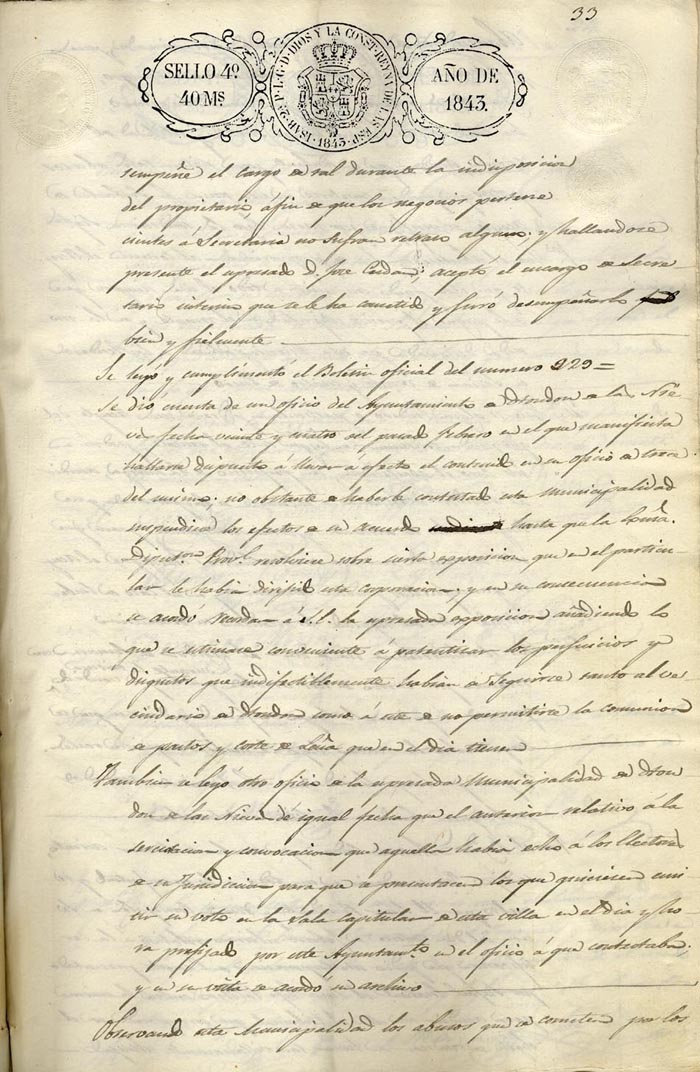 33
SELLO 4º
40 Ms
ISAB. 2ª P. L. G. D. DIOS Y LA CONST. REYNA DE LAS ESP.
1843.
AÑO DE
1843.
sempeñe el cargo de tal durante la indisposicion
del propietario, á fin de que los negocios pertene
cientes á Secretaria no sufran retraso alguno. y hallandose
presente el espresado D. Jose aceptó el encargo de Secre-
tario interino que se le ha cometido y juró desempeñarlo
bien y fielmente
Se leyó y cumplimentó el Boletin oficial del numero 229=
Se dio cuenta de un oficio del Ayuntamiento de de las Nie
ves fecha veinte y cuatro del pasado febrero en el que manifiesta
hallarse dispuesto á llevar á efecto el contenido en su oficio de trece
del mismo; no obstante de haberle contestado esta Municipalidad
suspendiese los efectos de su acuerdo hasta que la Exma.
Diputon. Provl. resolviese sobre cierta exposicion que en el particu-
lar le habia dirijido esta corporacion. y en su consecuencia
se acordó á S.E. la espresada exposicion añadiendo lo
que se estimase conveniente á patentizar los perjuicios y
disgustos que indefectiblemente habian de seguirse tanto al ve-
cindario de como á este de no permitirse la comunion
de pastos y corte de Leña que en el dia tienen
Tambien se leyó otro oficio de la espresada Municipalidad de
de las Nieves de igual fecha que el anterior relativo á la
y convocacion que aquella habia echo á los Electores
de su Jurisdicion para que se presentasen los que quisiesen emi
tir su voto en la Sala capitular de esta villa en el dia y ho
ra prefijado por este Ayuntamto. en el oficio á que contestaba.
y en su vista se acordó su archivo
Observando esta Municipalidad los abusos que se cometen por los